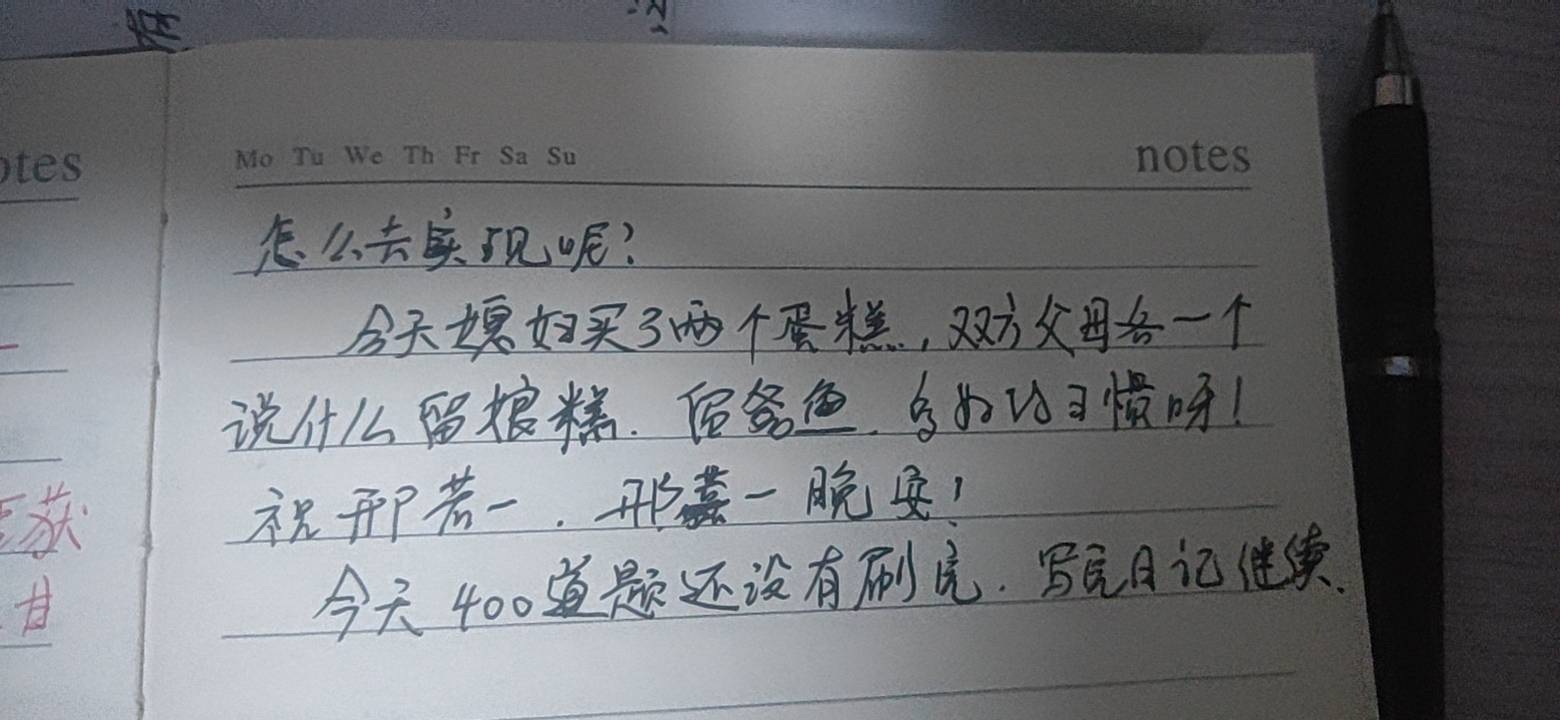 otes
Mo Tu We Th Fr Sa Su
notes
怎么去实现呢?
今天媳妇买了两个蛋糕,双方父母各一个
说什么留娘糕.留爸鱼.多好的习惯呀!
祝邢若一.邢一晚安!
今天400道题还没有刷完.写完日记继续.
获
甘